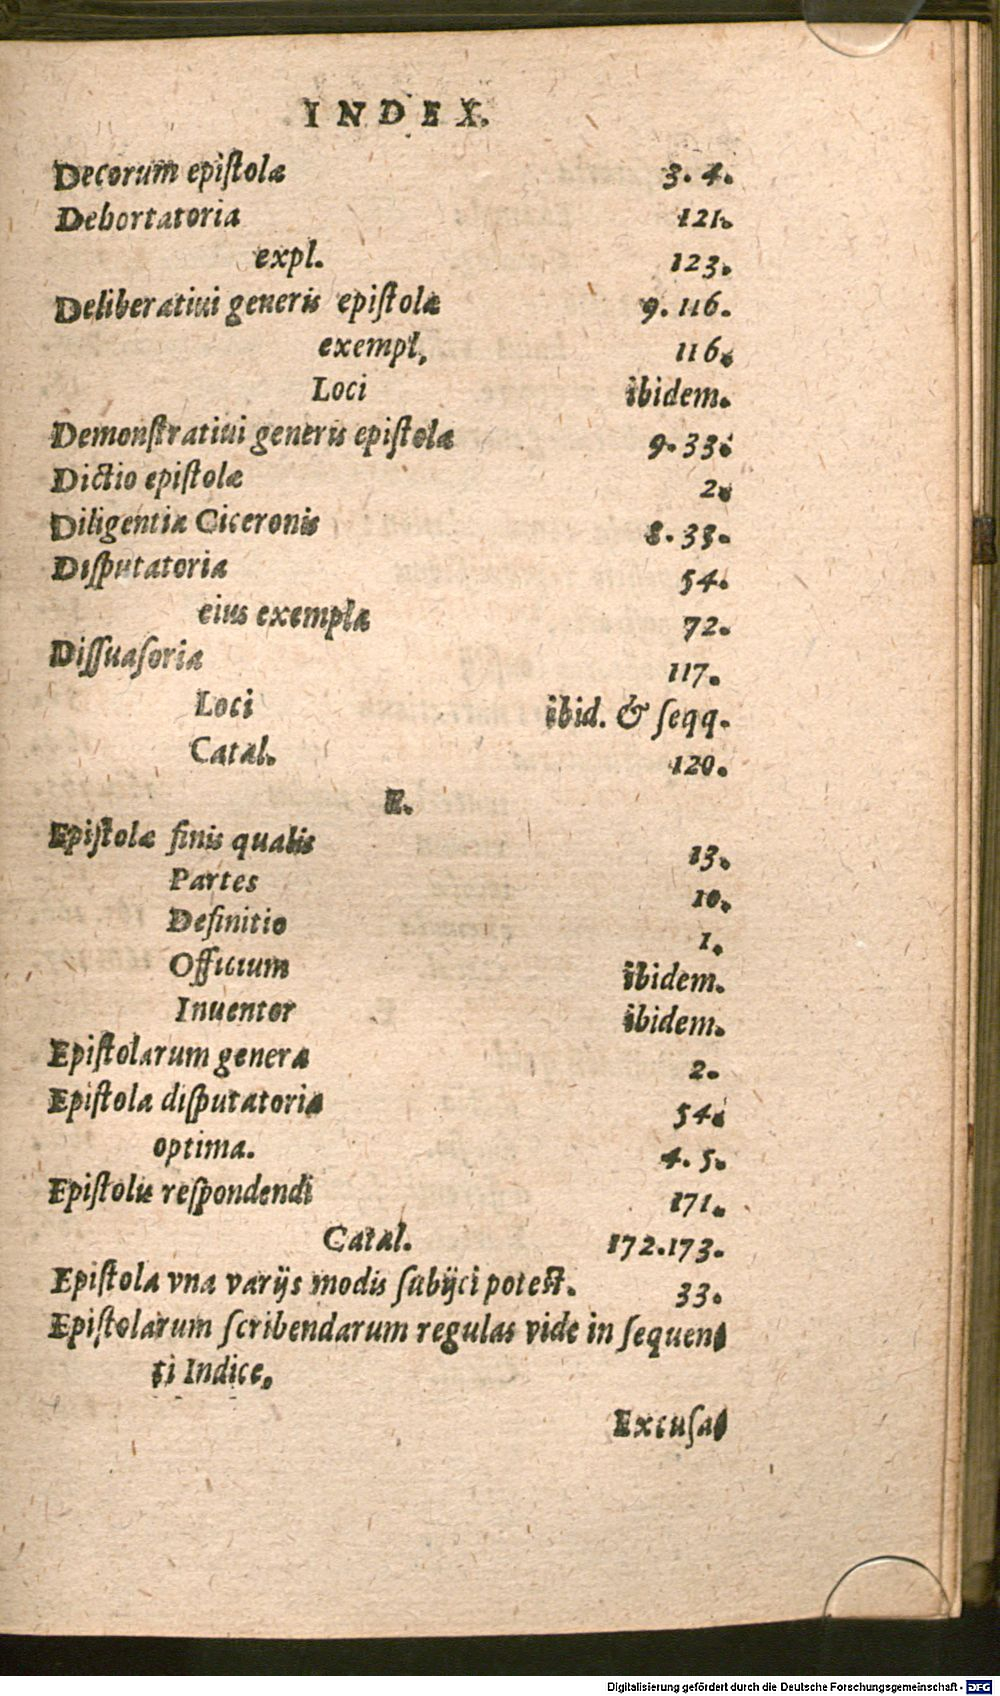 INDEX.
Decorum epiſtolæ 3. 4.
Dehortatoria 121.
expl. 123.
Deliberatiui generis epiſtolæ 9. 116.
exempl. 116.
Loci ibidem.
Demonſtratiui generis epiſtolæ 9. 33.
Dictio epiſtolæ 2.
Diligentia Ciceronis 8. 33.
Diſputatoria 54.
eius exempla 72.
Diſſuaſoria 117.
Loci ibid. & ſeqq.
Catal. 120.
E.
Epiſtolæ finis qualis 13.
Partes 10.
Definitio 1.
Officium ibidem.
Inuentor ibidem.
Epiſtolarum genera 2.
Epiſtola diſputatoria 54.
optima. 4. 5.
Epiſtolis reſpondendi 171.
Catal. 172.173.
Epiſtola vna varijs modis ſubijci poteſt. 33.
Epiſtolarum ſcribendarum regulas vide in ſequen-
ti Indice.
Excuſa-
Digitalisierung gefördert durch die Deutsche Forschungsgemeinschaft - DFG